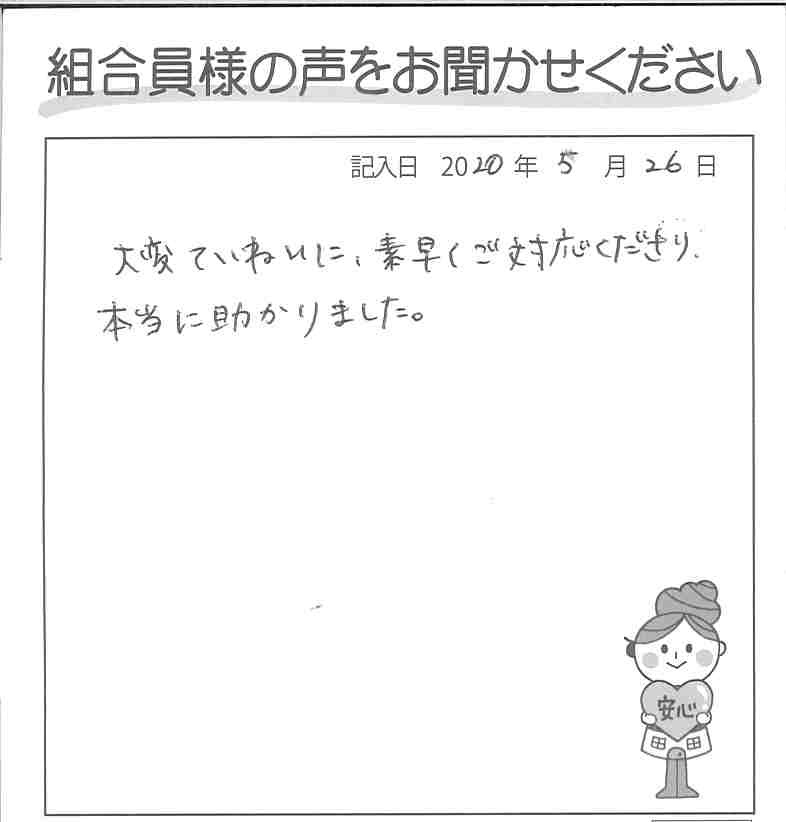 組合員様の声をお聞かせください
記入日 2020 年 5 月 26 日
大変ていねいに、素早くご対応くださり、
本当に助かりました。
安心